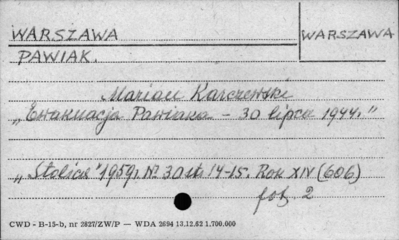 WARSZAWA
WARSZAWA
PAWIAK.
Marian Karczewski
„Ewakuacja Pawiaka – 30 lipca 1944."
„Stolica" 1959r. Nr. 30 str. 14-15. Rok XIV (606)
fot. 2
CWD - B-15-b, nr 2827/ZW/P — WDA 2694 13.12.62 1.700.000